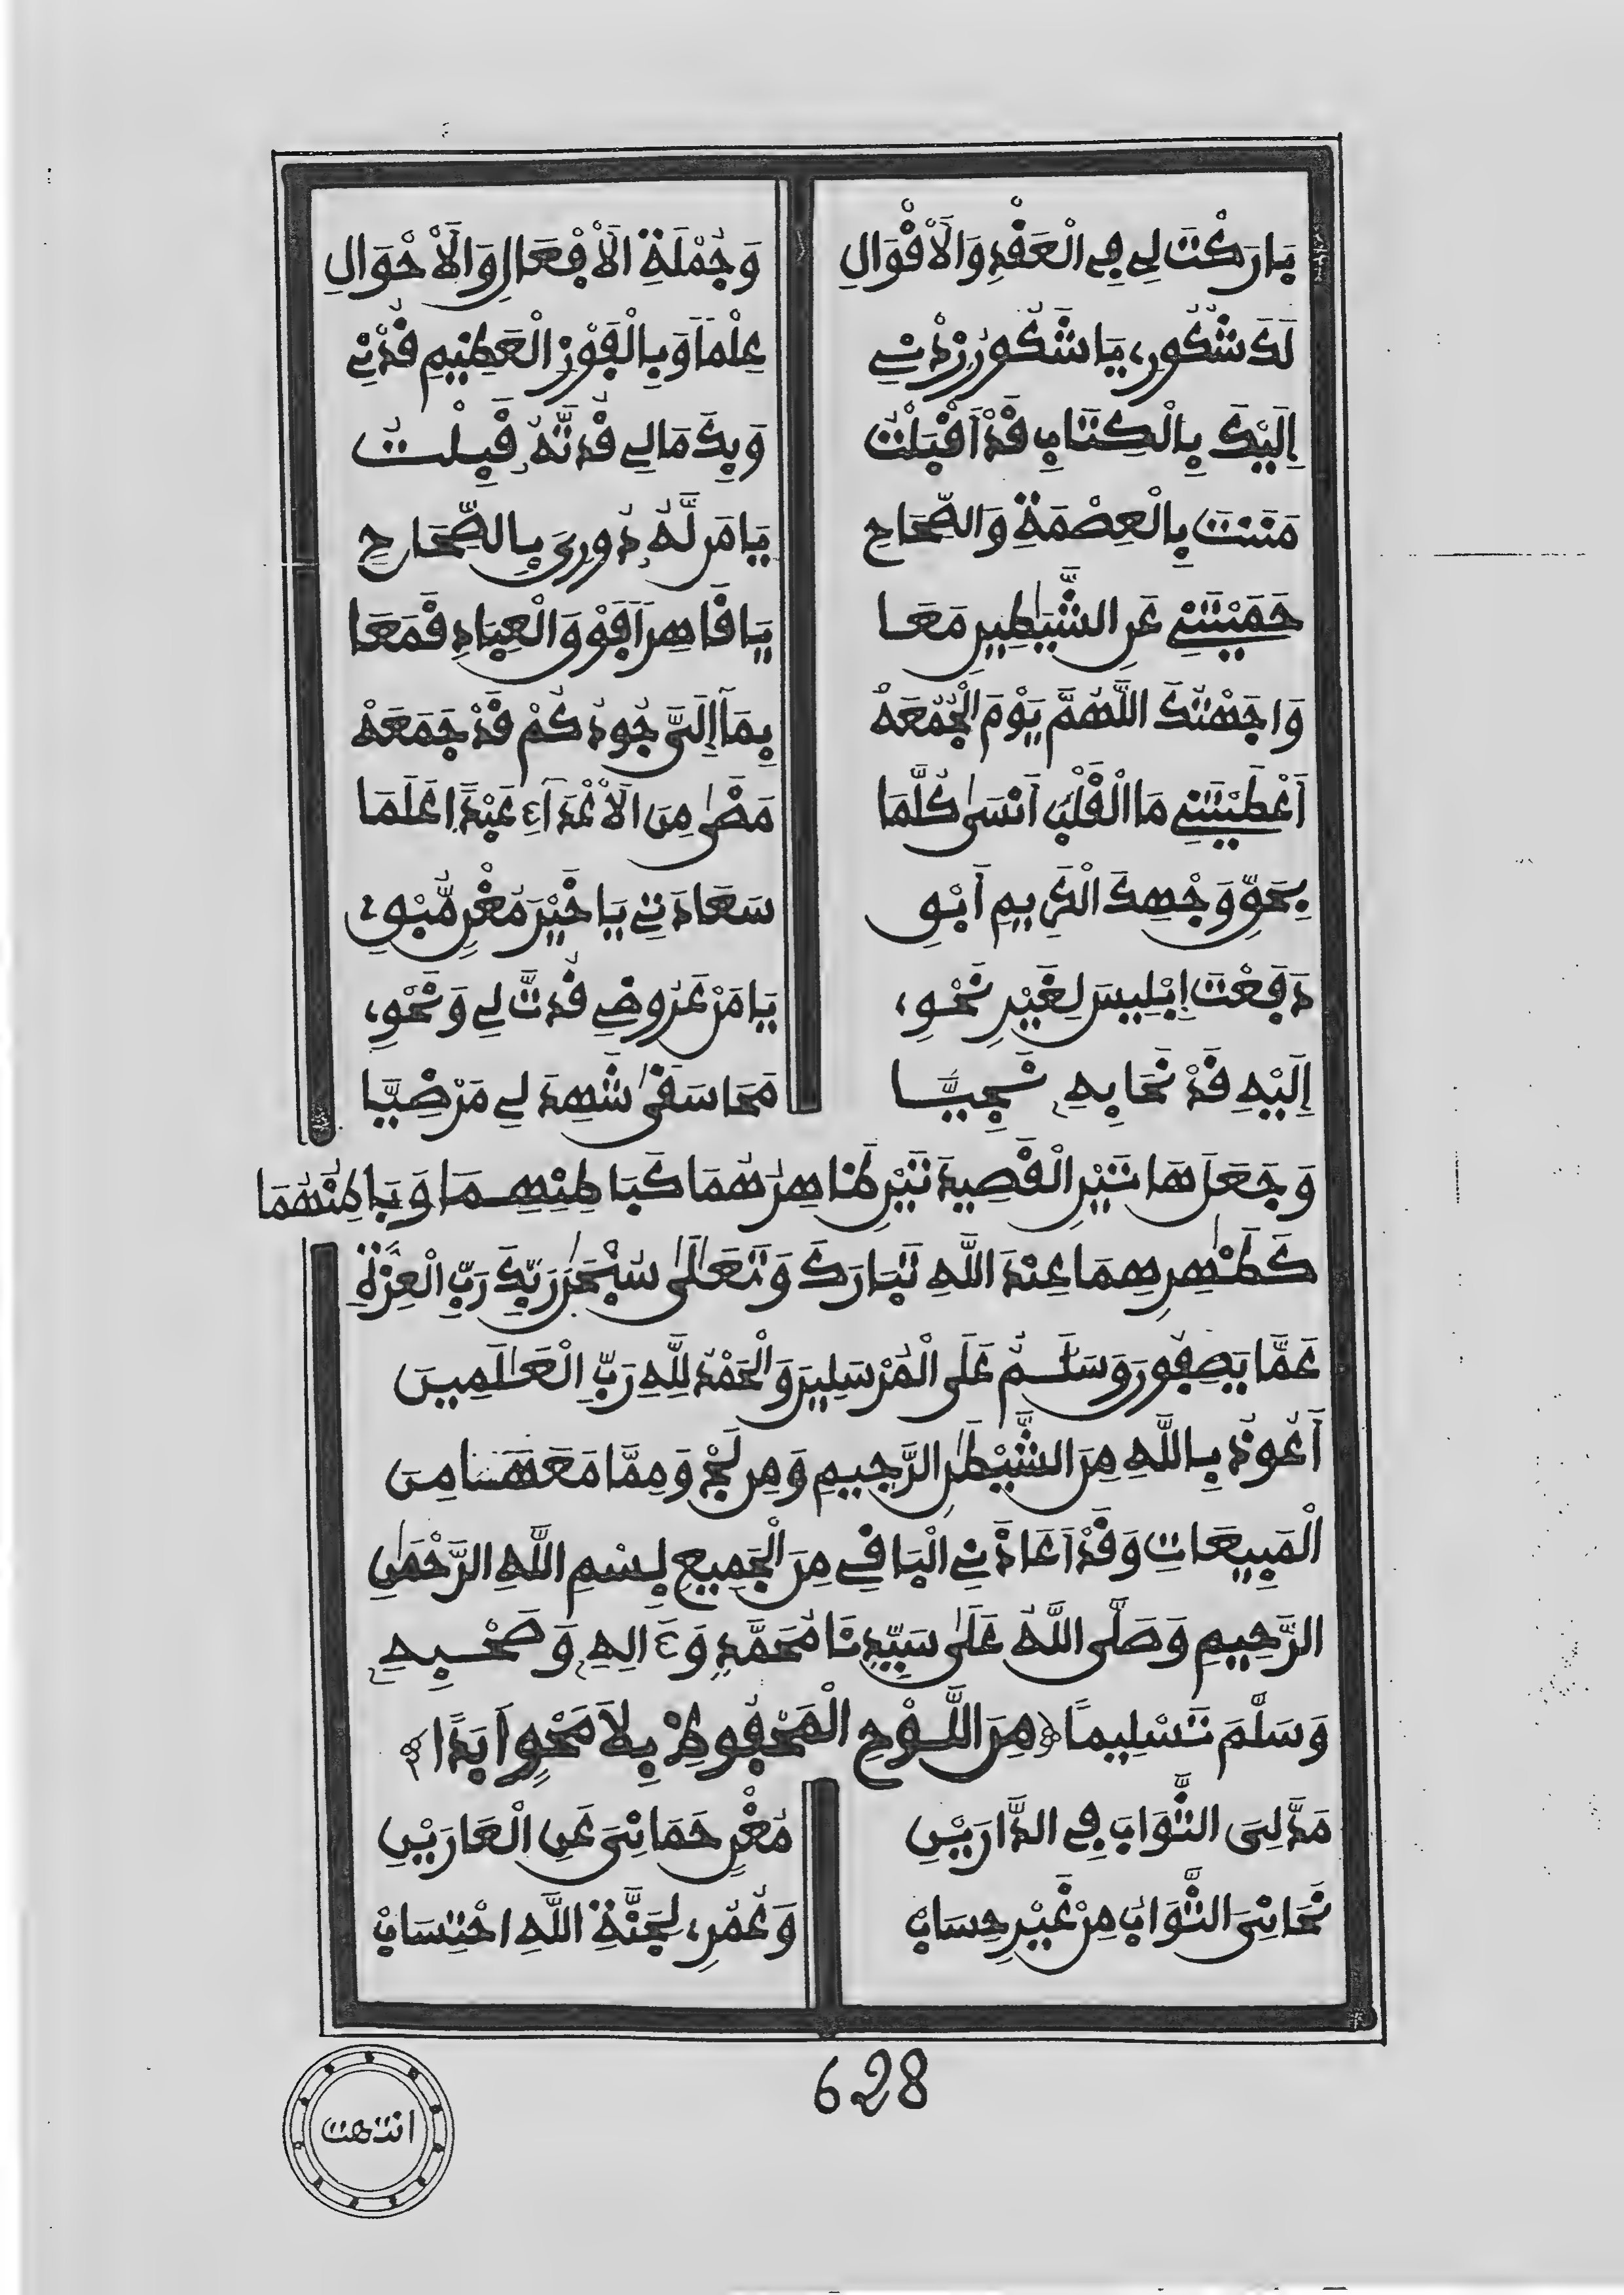 بَارَكْتَ لِي فِي الْعَقْدِ وَالْأَقْوَالِ وَجُمْلَةِ الْأَفْعَالِ وَالْأَحْوَالِ
لَكَ شُكُورِي يَا شَكُورُ زِدْنِي عِلْمًا وَبِالْفَوْزِ الْعَظِيمِ قُدْنِي
إِلَيْكَ بِالْكِتَابِ قَدْ أَقْبَلْتُ وَبِكَ مَالِي قُدْتَهُ قَبِلْتُ
مَنَنْتَ بِالْعِصْمَةِ وَالصِّحَاحِ يَا مَن لَّهُ دُورِي بِالصِّحَاحِ
حَمَيْتَنِي عَنِ الشَّيَٰطِينِ مَعَا يَا قَاهِرًا فَوْقَ الْعِبَادِ قَمَعَا
وَاجَهْتُكَ اللَّهُمَّ يَوْمَ الْجُمُعَهْ بِمَا إِلَيَّ جُودُكُمْ قَدْ جَمَعَهْ
أَعْطَيْتَنِي مَا الْقَلْبُ أَنْسَىٰ كُلَّمَا مَضَىٰ مِنَ الْأَعْدَآءِ عَبْدًا عَلَمَا
بِحَقِّ وَجْهِكَ الْكَرِيمِ أَبْقِ سَعَادَتِي يَا خَيْرَ مُغْنٍ مُّبْقِ
دَفَعْتَ إِبْلِيسَ لِغَيْرِ نَحْوِي يَا مَنْ عَرُوضِي قُدتَّ لِي وَنَحْوِي
إِلَيْهِ قَدْ نَحَا بِهِ نَجِيَّا مَحَا سَقَىٰ شُهْدَ لِي مَرْضِيَّا
وَجَعَلَ هَاتَيْنِ الْقَصِيدَتَيْنِ ظَاهِرُهُمَا كَبَاطِنِهِمَا وَبَاطِنُهُمَا
كَظَٰهِرِهِمَا عِنْدَ اللَّهِ تَبَارَكَ وَتَعَالَىٰ سُبْحَٰنَ رَبِّكَ رَبِّ الْعِزَّةِ
عَمَّا يَصِفُونَ وَسَلَٰمٌ عَلَى الْمُرْسَلِينَ وَالْحَمْدُ لِلَّهِ رَبِّ الْعَٰلَمِينَ
أَعُوذُ بِاللَّهِ مِنَ الشَّيْطَٰنِ الرَّجِيمِ وَمِن لُجٍّ وَمِمَّا مَعَهَا مِنَ
الْمَبِيعَاتِ وَقَدْ أَعَاذَنِي الْبَاقِي مِنَ الْجَمِيعِ بِسْمِ اللَّهِ الرَّحْمَٰنِ
الرَّحِيمِ وَصَلَّى اللَّهُ عَلَىٰ سَيِّدِنَا مُحَمَّدٍ وَءَالِهِ وَصَحْبِهِ
وَسَلَّمَ تَسْلِيمًا مِنَ اللَّوْحِ الْمَحْفُوظِ بِلَا مَحْوٍ أَبَدًا
مَدَّ لِيَ الثَّوَابَ فِي الدَّارَيْنِ مُغْنٍ حَمَانِيَ عَنِ الْعَارَيْنِ
نَحَانِيَ الثَّوَابُ مِنْ غَيْرِ حِسَابْ وَعُمُرِي لِجَنَّةِ اللَّهِ احْتِسَابْ
628
انتهت